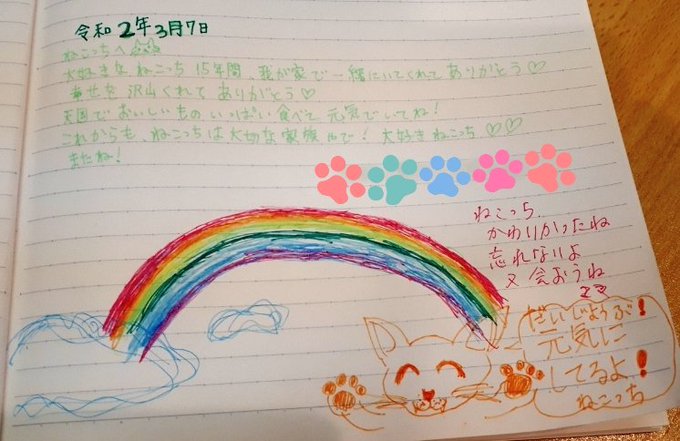 令和2年3月7日
ねこっちへ
大好きなねこっち 15年間、我が家で一緒にいてくれてありがとう♡
幸せを沢山くれてありがとう♡
天国でおいしいものいっぱい食べて元気でいてね!
これからも、ねこっちは大切な家族やで! 大好きねこっち♡♡
またね!
ねこっち、
かわいかったね
忘れないよ
又会おうね
だいじょうぶ!
元気に
してるよ!
ねこっち